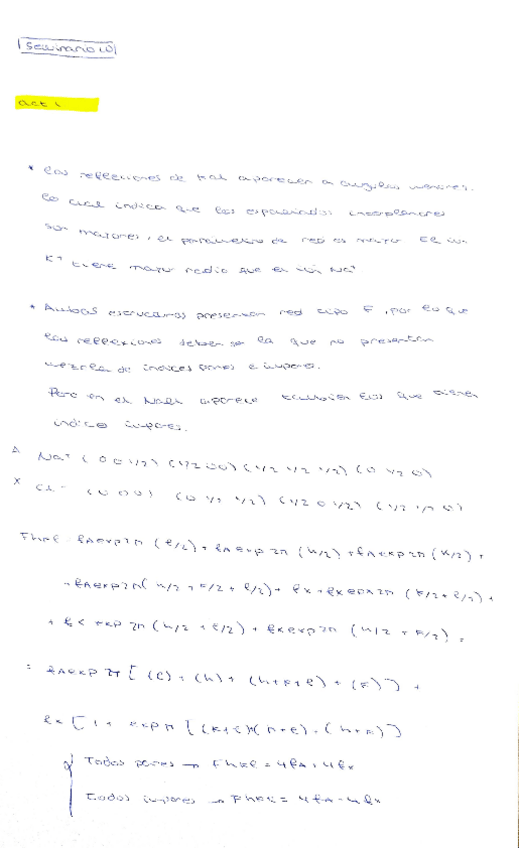 Seminario
act 1
* Las reflexiones de KCl aparecen a angulos menores.
lo cual indica que los espaciados interplanares
son mayores, el parámetro de red es mayor. El ion
K⁺ tiene mayor radio que el ion Na⁺
* Ambas estructuras presentan red tipo F, por lo que
las reflexiones deben ser la que no presentan
mezcla de indices pares e impares.
Pero en el NaCl aparece también los que tienen
indices impares.
Δ Na⁺ (0 0 1/2) (1/2 0 0) (1/2 1/2 1/2) (0 1/2 0)
X Cl⁻ (0 0 0) (0 1/2 1/2) (1/2 0 1/2) (1/2 1/2 0)
Fhkl = fA exp 2π (l/2) + fA exp 2π (h/2) + fA exp 2π (k/2) +
+ fA exp 2π (h/2 + k/2 + l/2) + fx + fx exp 2π (k/2 + l/2) +
+ fx exp 2π (h/2 + l/2) + fx exp 2π (h/2 + k/2) =
= fA exp π [(l) + (h) + (h+k+l) + (k)] +
fx [1 + exp π [(k+l) + (h+l) + (h+k)]
Todos pares → Fhkl = 4fA + 4fx
todos impares → Fhkl = 4fA - 4fx